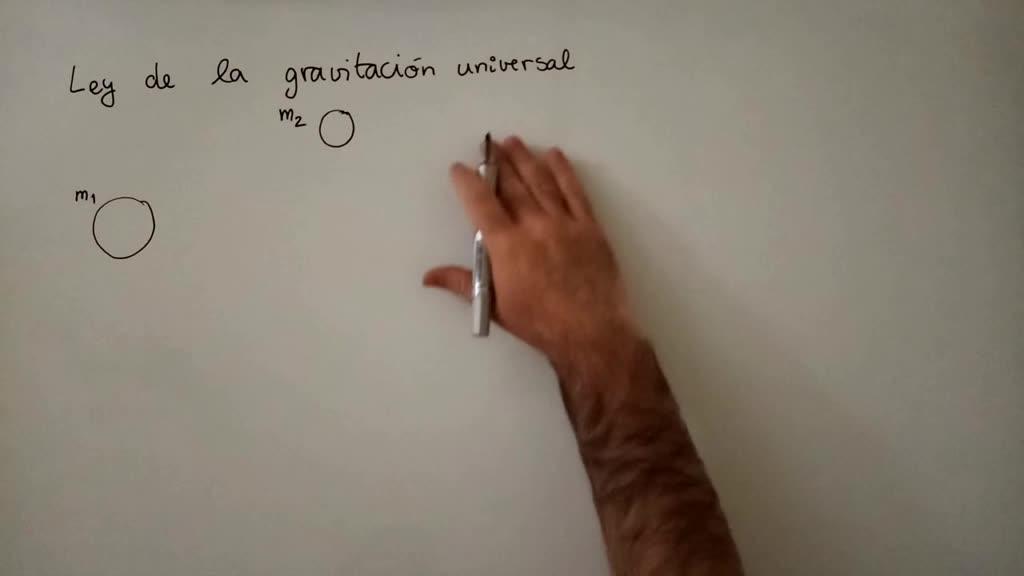 Ley de la gravitación universal
m₂
m₁